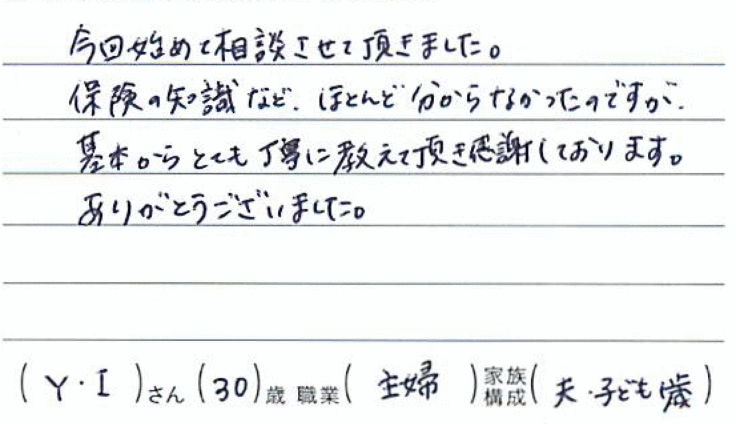 今回始めて相談させて頂きました。
保険の知識など、ほとんど分からなかったのですが、
基本からとても丁寧に教えて頂き感謝しております。
ありがとうございました。
(Y・I)さん(30)歳 職業(主婦)家族構成(夫・子ども1歳)